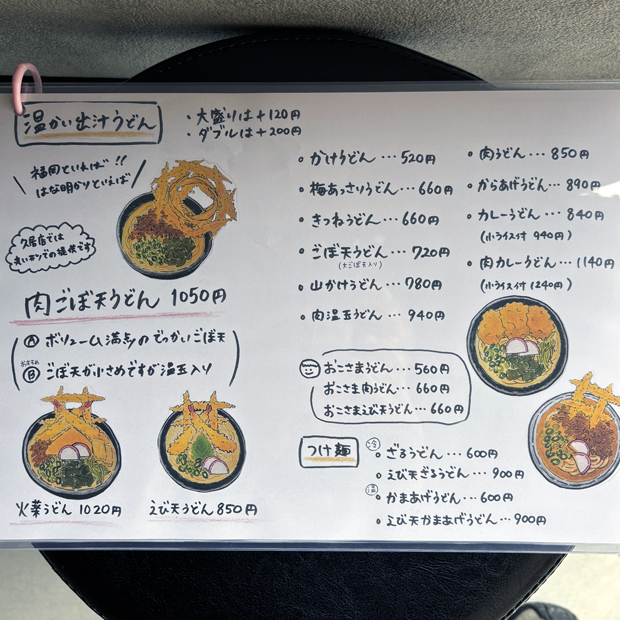 温かい出汁うどん
・大盛りは+120円
・ダブルは+200円
福岡といえば!!
はな明かりといえば
久居店では
丸いホンでの提供です
肉ごぼ天うどん 1050円
Ⓐ ボリューム満点のでっかいごぼ天
おすすめ
Ⓑ ごぼ天が小さめですが温玉入り
火華うどん 1020円
えび天うどん 850円
・かけうどん…520円
・梅あっさりうどん…660円
・きつねうどん…660円
・ごぼ天うどん…720円
(大ごぼ天入り)
・山かけうどん…780円
・肉温玉うどん…940円
・肉うどん…850円
・からあげうどん…890円
・カレーうどん…840円
(小ライス付 940円)
・肉カレーうどん…1140円
(小ライス付 1240円)
おこさまうどん…560円
おこさま肉うどん…660円
おこさまえび天うどん…660円
つけ麺
冷
・ざるうどん…600円
・えび天ざるうどん…900円
温
・かまあげうどん…600円
・えび天かまあげうどん…900円